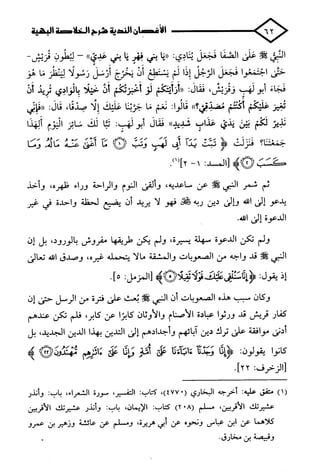 ٦٢ الأغصان الندية شرح الخلاصة البهية
النبي ﷺ عَلَى الصَّفَا فَجَعَلَ يُنَادِي: «يَا بَنِي فِهْرٍ يَا بَنِي عَدِيٍّ» - لِبُطُونِ قُرَيْشٍ -
حَتَّى اجْتَمَعُوا فَجَعَلَ الرَّجُلُ إِذَا لَمْ يَسْتَطِعْ أَنْ يَخْرُجَ أَرْسَلَ رَسُولًا لِيَنْظُرَ مَا هُوَ
فَجَاءَ أَبُو لَهَبٍ وَقُرَيْشٌ، فَقَالَ: «أَرَأَيْتَكُمْ لَوْ أَخْبَرْتُكُمْ أَنَّ خَيْلًا بِالْوَادِي تُرِيدُ أَنْ
تُغِيرَ عَلَيْكُمْ أَكُنْتُمْ مُصَدِّقِيَّ؟» قَالُوا: نَعَمْ مَا جَرَّبْنَا عَلَيْكَ إِلَّا صِدْقًا، قَالَ: «فَإِنِّي
نَذِيرٌ لَكُمْ بَيْنَ يَدَيْ عَذَابٍ شَدِيدٍ» فَقَالَ أَبُو لَهَبٍ: تَبًّا لَكَ سَائِرَ الْيَوْمِ أَلِهَذَا
جَمَعْتَنَا؟ فَنَزَلَتْ ﴿تَبَّتْ يَدَا أَبِي لَهَبٍ وَتَبَّ ۝١ مَا أَغْنَى عَنْهُ مَالُهُ وَمَا
كَسَبَ ۝٢﴾ [المسد: ١-٢](١).
ثم شمر النبي ﷺ عن ساعديه، وألقى النوم والراحة وراء ظهره، وأخذ
يدعو إلى الله وإلى دين ربه ﷻ فهو لا يريد أن يضيع لحظة واحدة في غير
الدعوة إلى الله.
ولم تكن الدعوة سهلة يسيرة، ولم يكن طريقها مفروش بالورود، بل إن
النبي ﷺ قد واجه من الصعوبات والمشقة مالا يتحمله غيره، وصدق الله تعالى
إذ يقول: ﴿إِنَّا سَنُلْقِي عَلَيْكَ قَوْلًا ثَقِيلًا ۝٥﴾ [المزمل: ٥].
وكان سبب هذه الصعوبات أن النبي ﷺ بُعث على فترة من الرسل حتى إن
كفار قريش قد ورثوا عبادة الأصنام والأوثان كابرًا عن كابر، فلم تكن عندهم
أدنى موافقة على ترك دين آبائهم وأجدادهم إلى التدين بهذا الدين الجديد، بل
كانوا يقولون: ﴿إِنَّا وَجَدْنَا آبَاءَنَا عَلَى أُمَّةٍ وَإِنَّا عَلَى آثَارِهِمْ مُهْتَدُونَ ۝٢٢﴾
[الزخرف: ٢٢].
(١) متفق عليه: أخرجه البخاري (٤٧٧٠)، كتاب: التفسير، سورة الشعراء، باب: وأنذر
عشيرتك الأقربين، مسلم (٢٠٨) كتاب: الإيمان، باب: وأنذر عشيرتك الأقربين
كلاهما عن ابن عباس ونحوه عن أبي هريرة، ومسلم عن عائشة وزهير بن عمرو
وقبيصة بن مخارق.